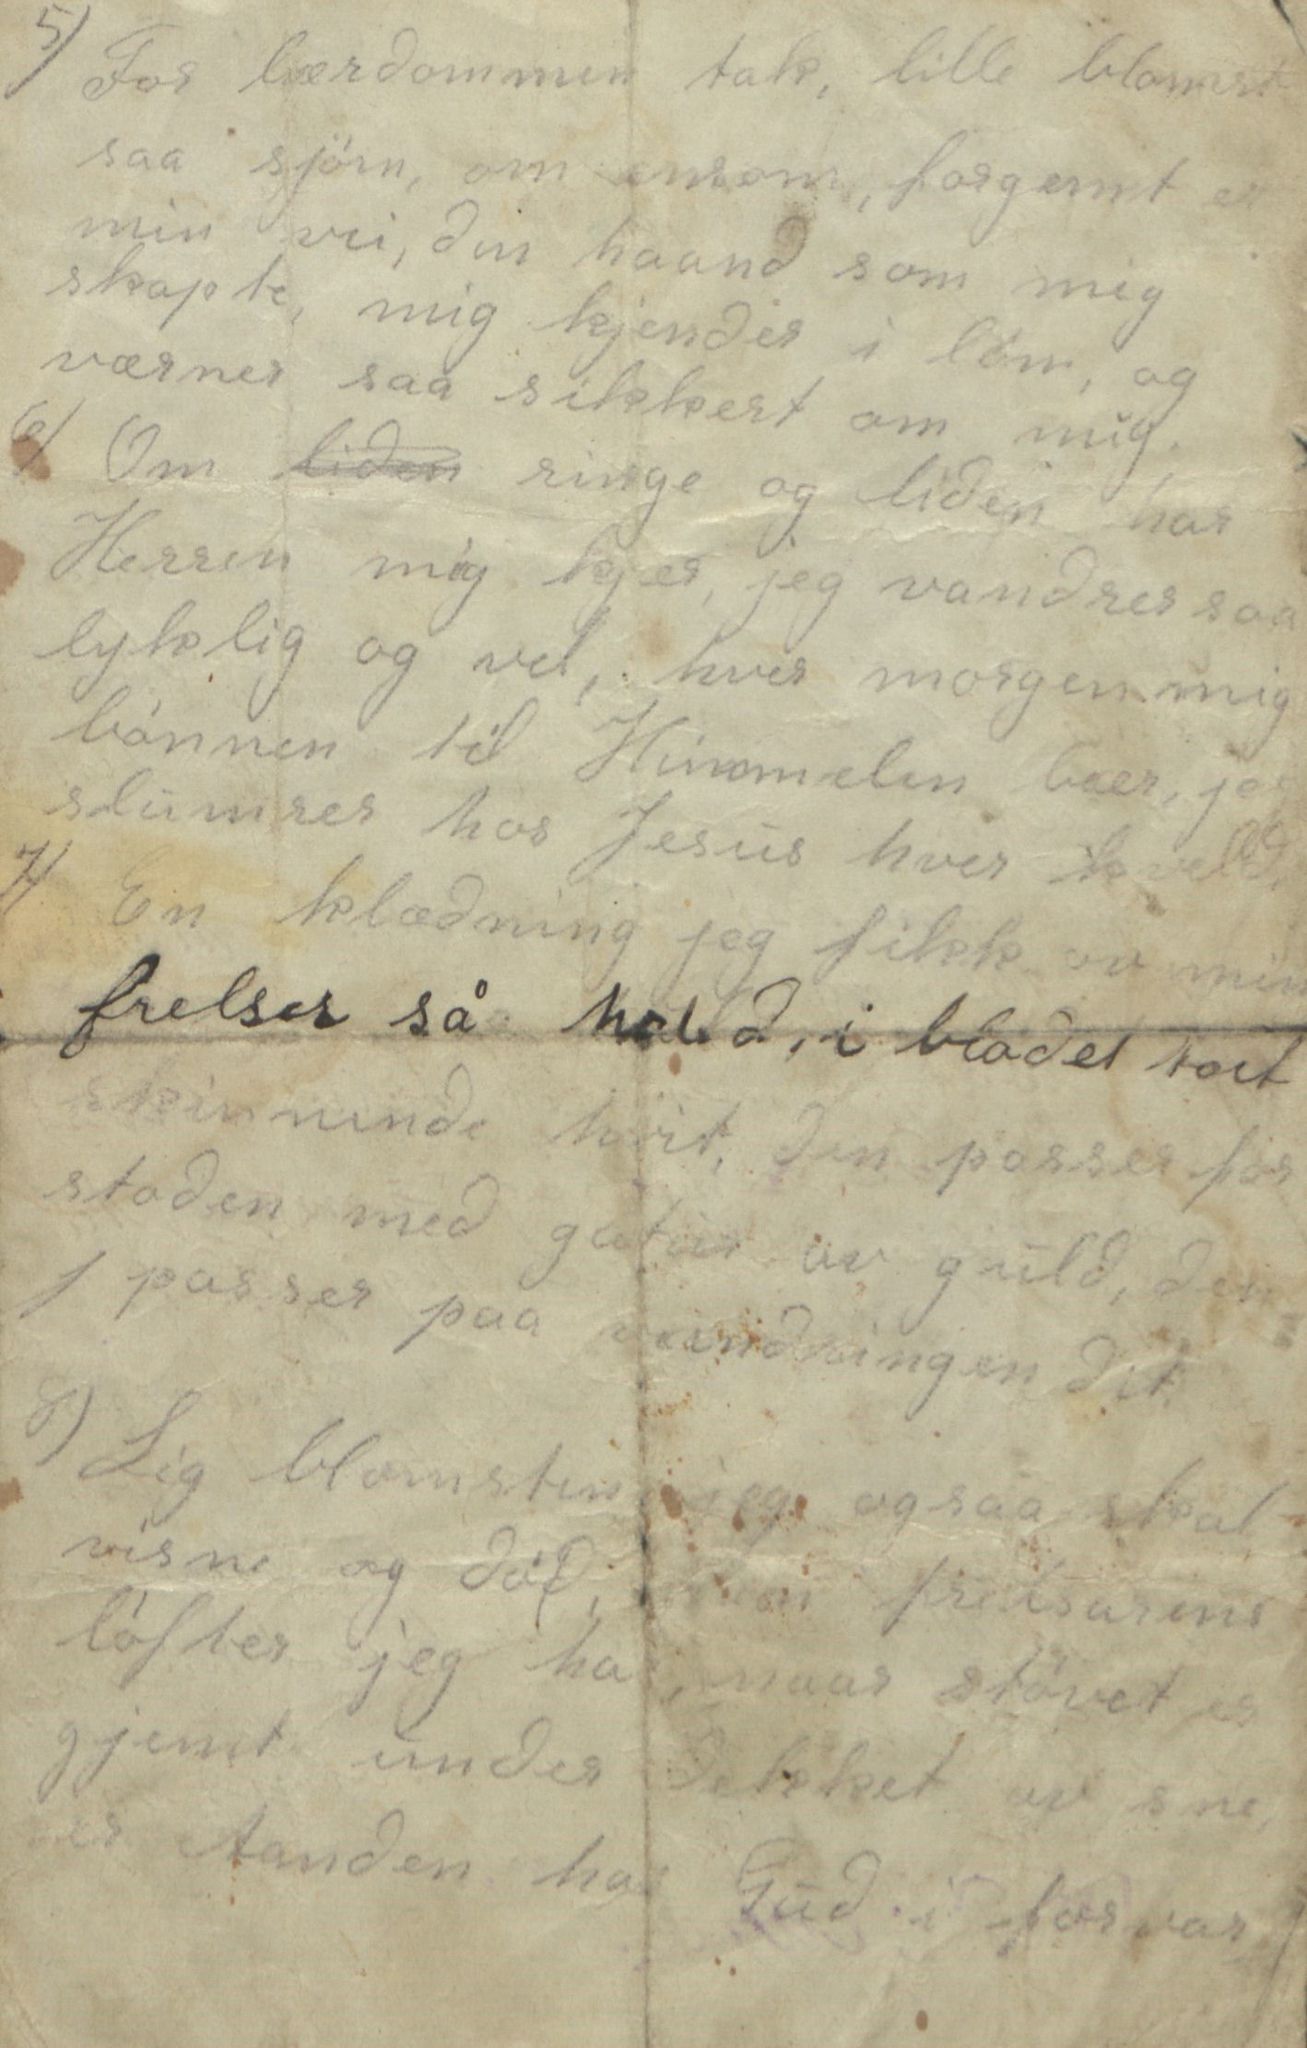 5) For lærdommen tak, lille blomst
saa sjön, om ensom, forgemt er
min vei, din haand som mig
skapte, mig kjender i lön, og
værner saa sikkert om mig.
6) Om liden ringe og liden har
Herren mig kjer, jeg vandrer saa
lyklig og vel, hver morgen mig
bönnen til Himmelen bær, jeg
slumrer hos Jesus hver kveld.
7) En klædning jeg fikk av min
frelser så huld, i blodet
skinnende hvit, den passer for
staden med gater av guld, den
passer paa vandringen dit.
8) Lig blomsten jeg ogsaa skal
visne og dö, men frelsarens
löfter jeg har, naar stövet er
gjemt under dekket av sne,
er Aanden hos Gud i forvar